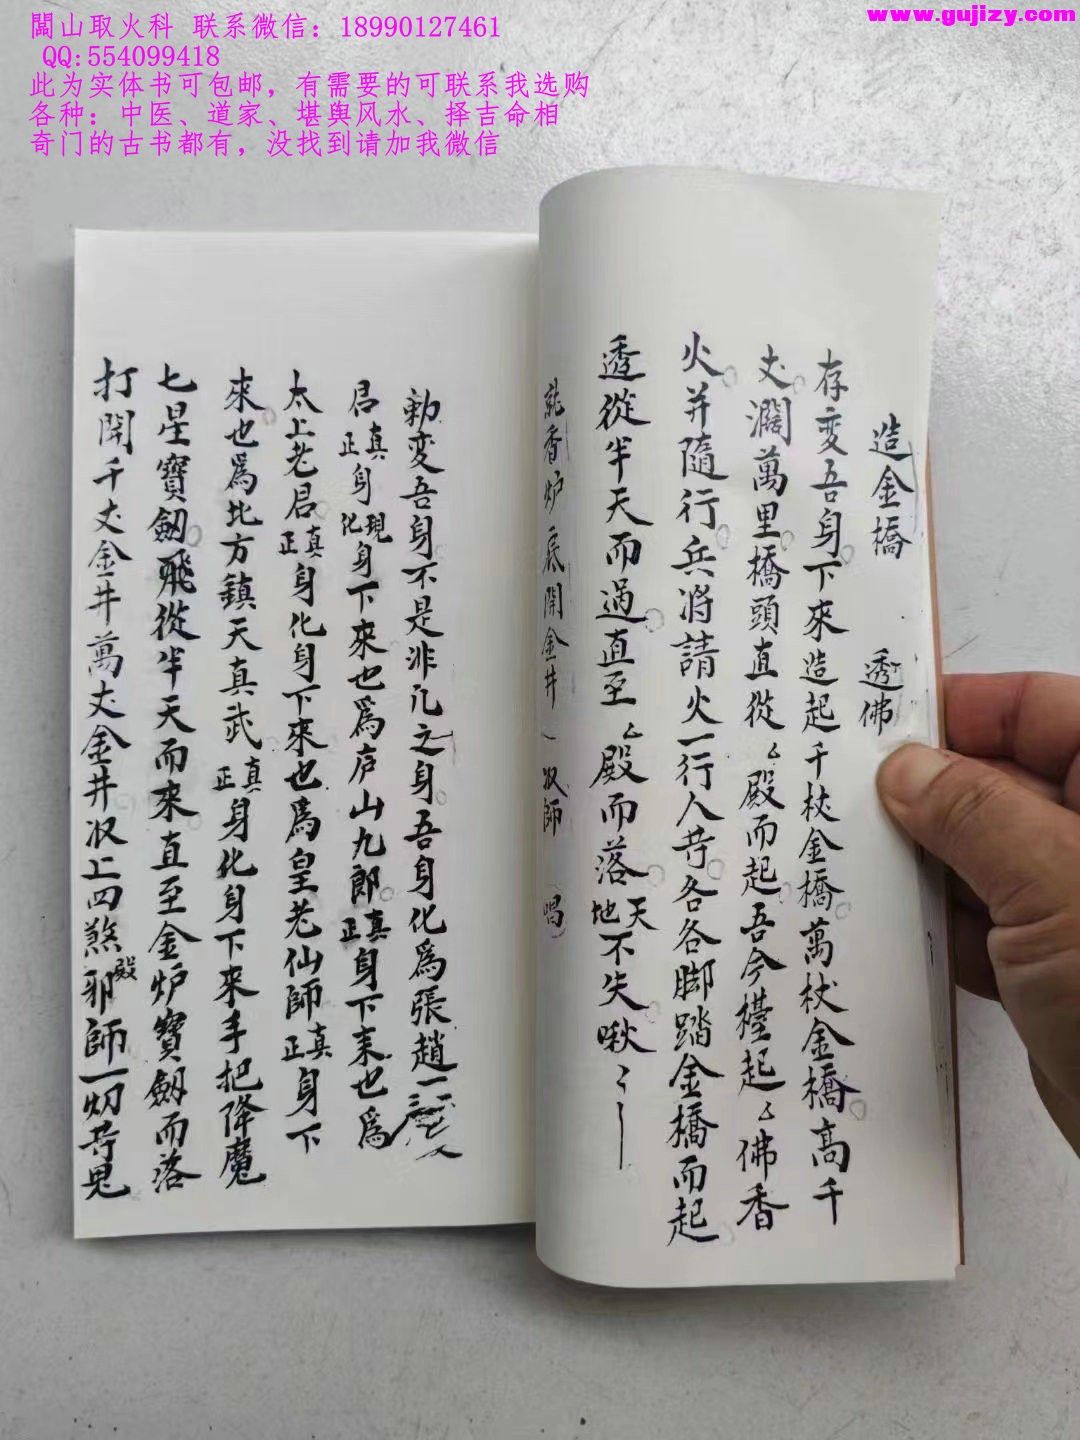 闾山取火科 联系微信：18990127461
QQ:554099418
此为实体书可包邮，有需要的可联系我选购
各种：中医、道家、堪舆风水、择吉命相
奇门的古书都有，没找到请加我微信
www.gujizy.com
造金橋 透佛
存变吾身下來造起千杖金橋萬杖金橋高千
丈濶萬里橋頭直從〻殿而起吾今檯起〻佛香
火并隨行兵将請火一行人等各各脚踏金橋而起
透從半天而過直至〻殿而落天地不失啾〻〻
就香炉底開金井 收師 唱
勅变吾身不是非凡之身吾身化爲張趙二
君真正身現化身下來也爲庐山九郎真正身下来也爲
太上老君真正身化身下來也爲皇老仙師真正身下
來也爲北方鎮天真武真正身化身下來手把降魔
七星寶劔飛從半天而來直至金炉寶劔而落
打開千丈金井萬丈金井收上四煞殿邪師一切等鬼